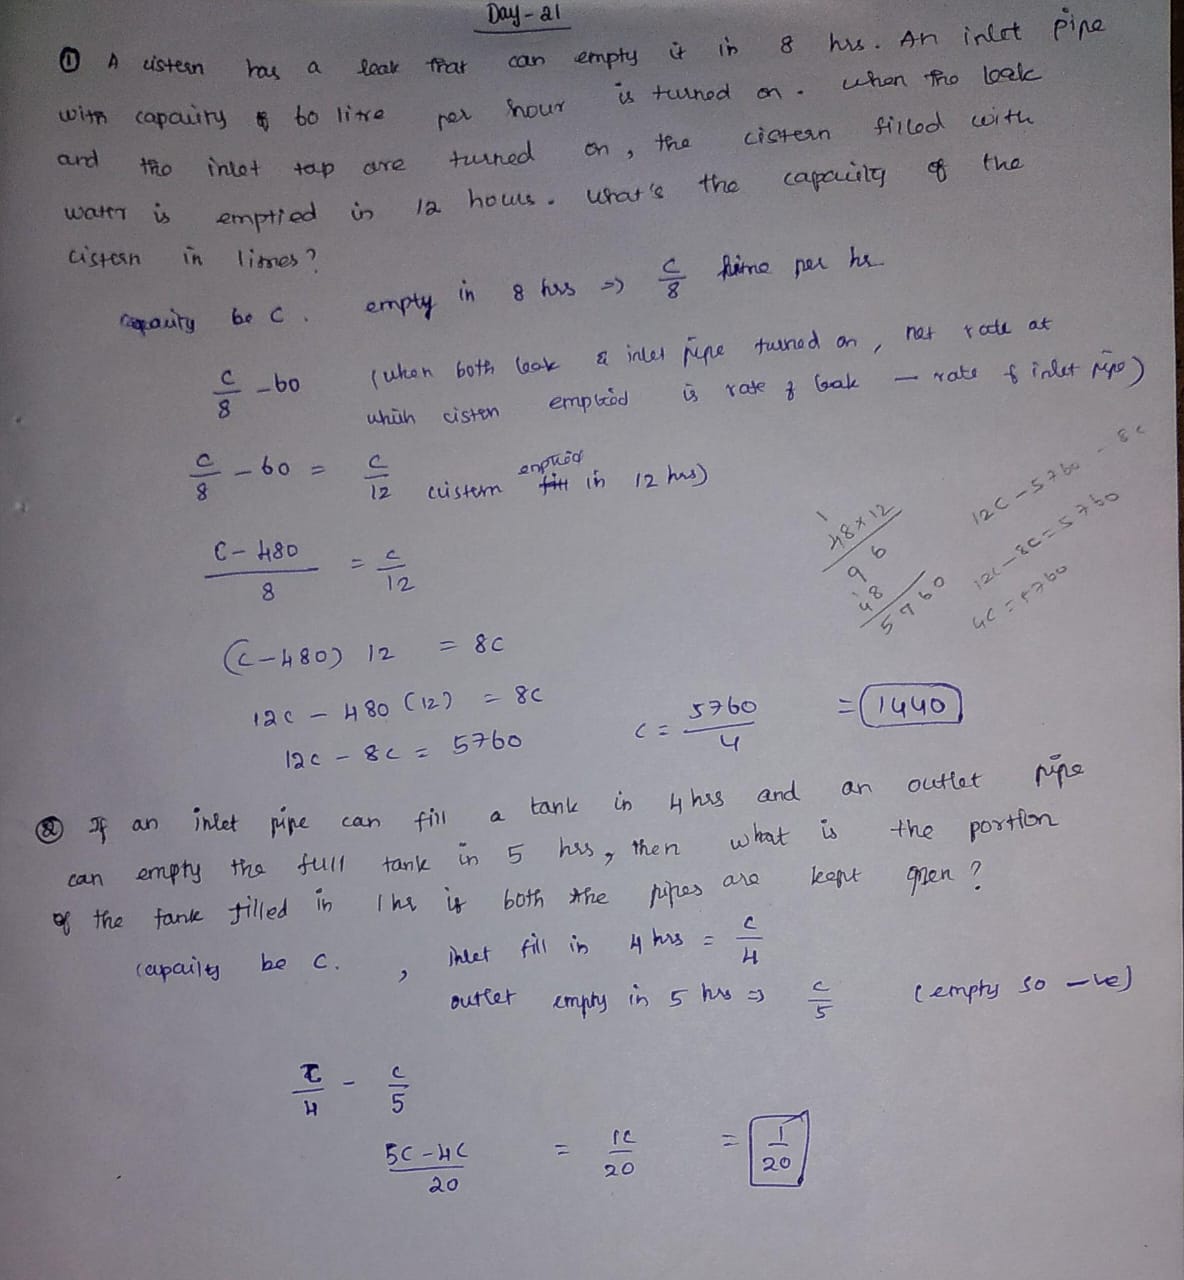 Day-21
① A cistern has a leak that can empty it in 8 hrs. An inlet pipe
with capacity of 60 litre per hour is turned on. when the leak
and the inlet tap are turned on, the cistern filled with
water is emptied in 12 hours. what's the capacity of the
cistern in litres?
capacity be C. empty in 8 hrs => C/8 per hr
C/8 - 60 (when both leak & inlet pipe turned on, net rate at
which cistern emptied is rate of leak - rate of inlet pipe)
C/8 - 60 = C/12 cistern emptied in 12 hrs)
C-480/8 = C/12
(C-480) 12 = 8C
12C - 480 (12) = 8C
12C - 8C = 5760
C = 5760/4 = 1440
1
48x12
96
48
5760
12C - 5760 - 8C
12C - 8C = 5760
4C = 5760
② If an inlet pipe can fill a tank in 4 hrs and an outlet pipe
can empty the full tank in 5 hrs, then what is the portion
of the tank filled in 1 hr if both the pipes are kept open?
capacity be C. , inlet fill in 4 hrs = C/4
outlet empty in 5 hrs => C/5 (empty so -ve)
C/4 - C/5
5C-4C/20 = 1C/20 = 1/20